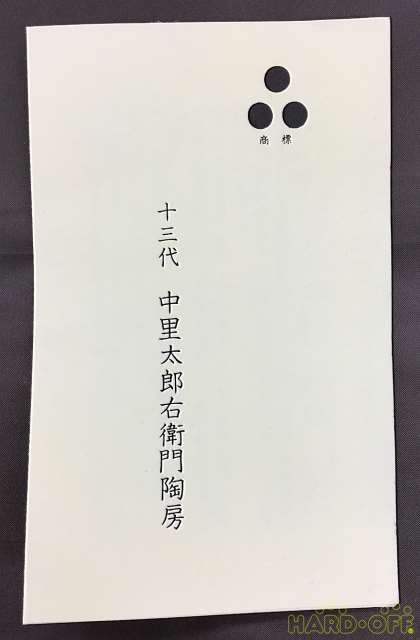 商標
十三代 中里太郎右衛門陶房
HARD・OFF